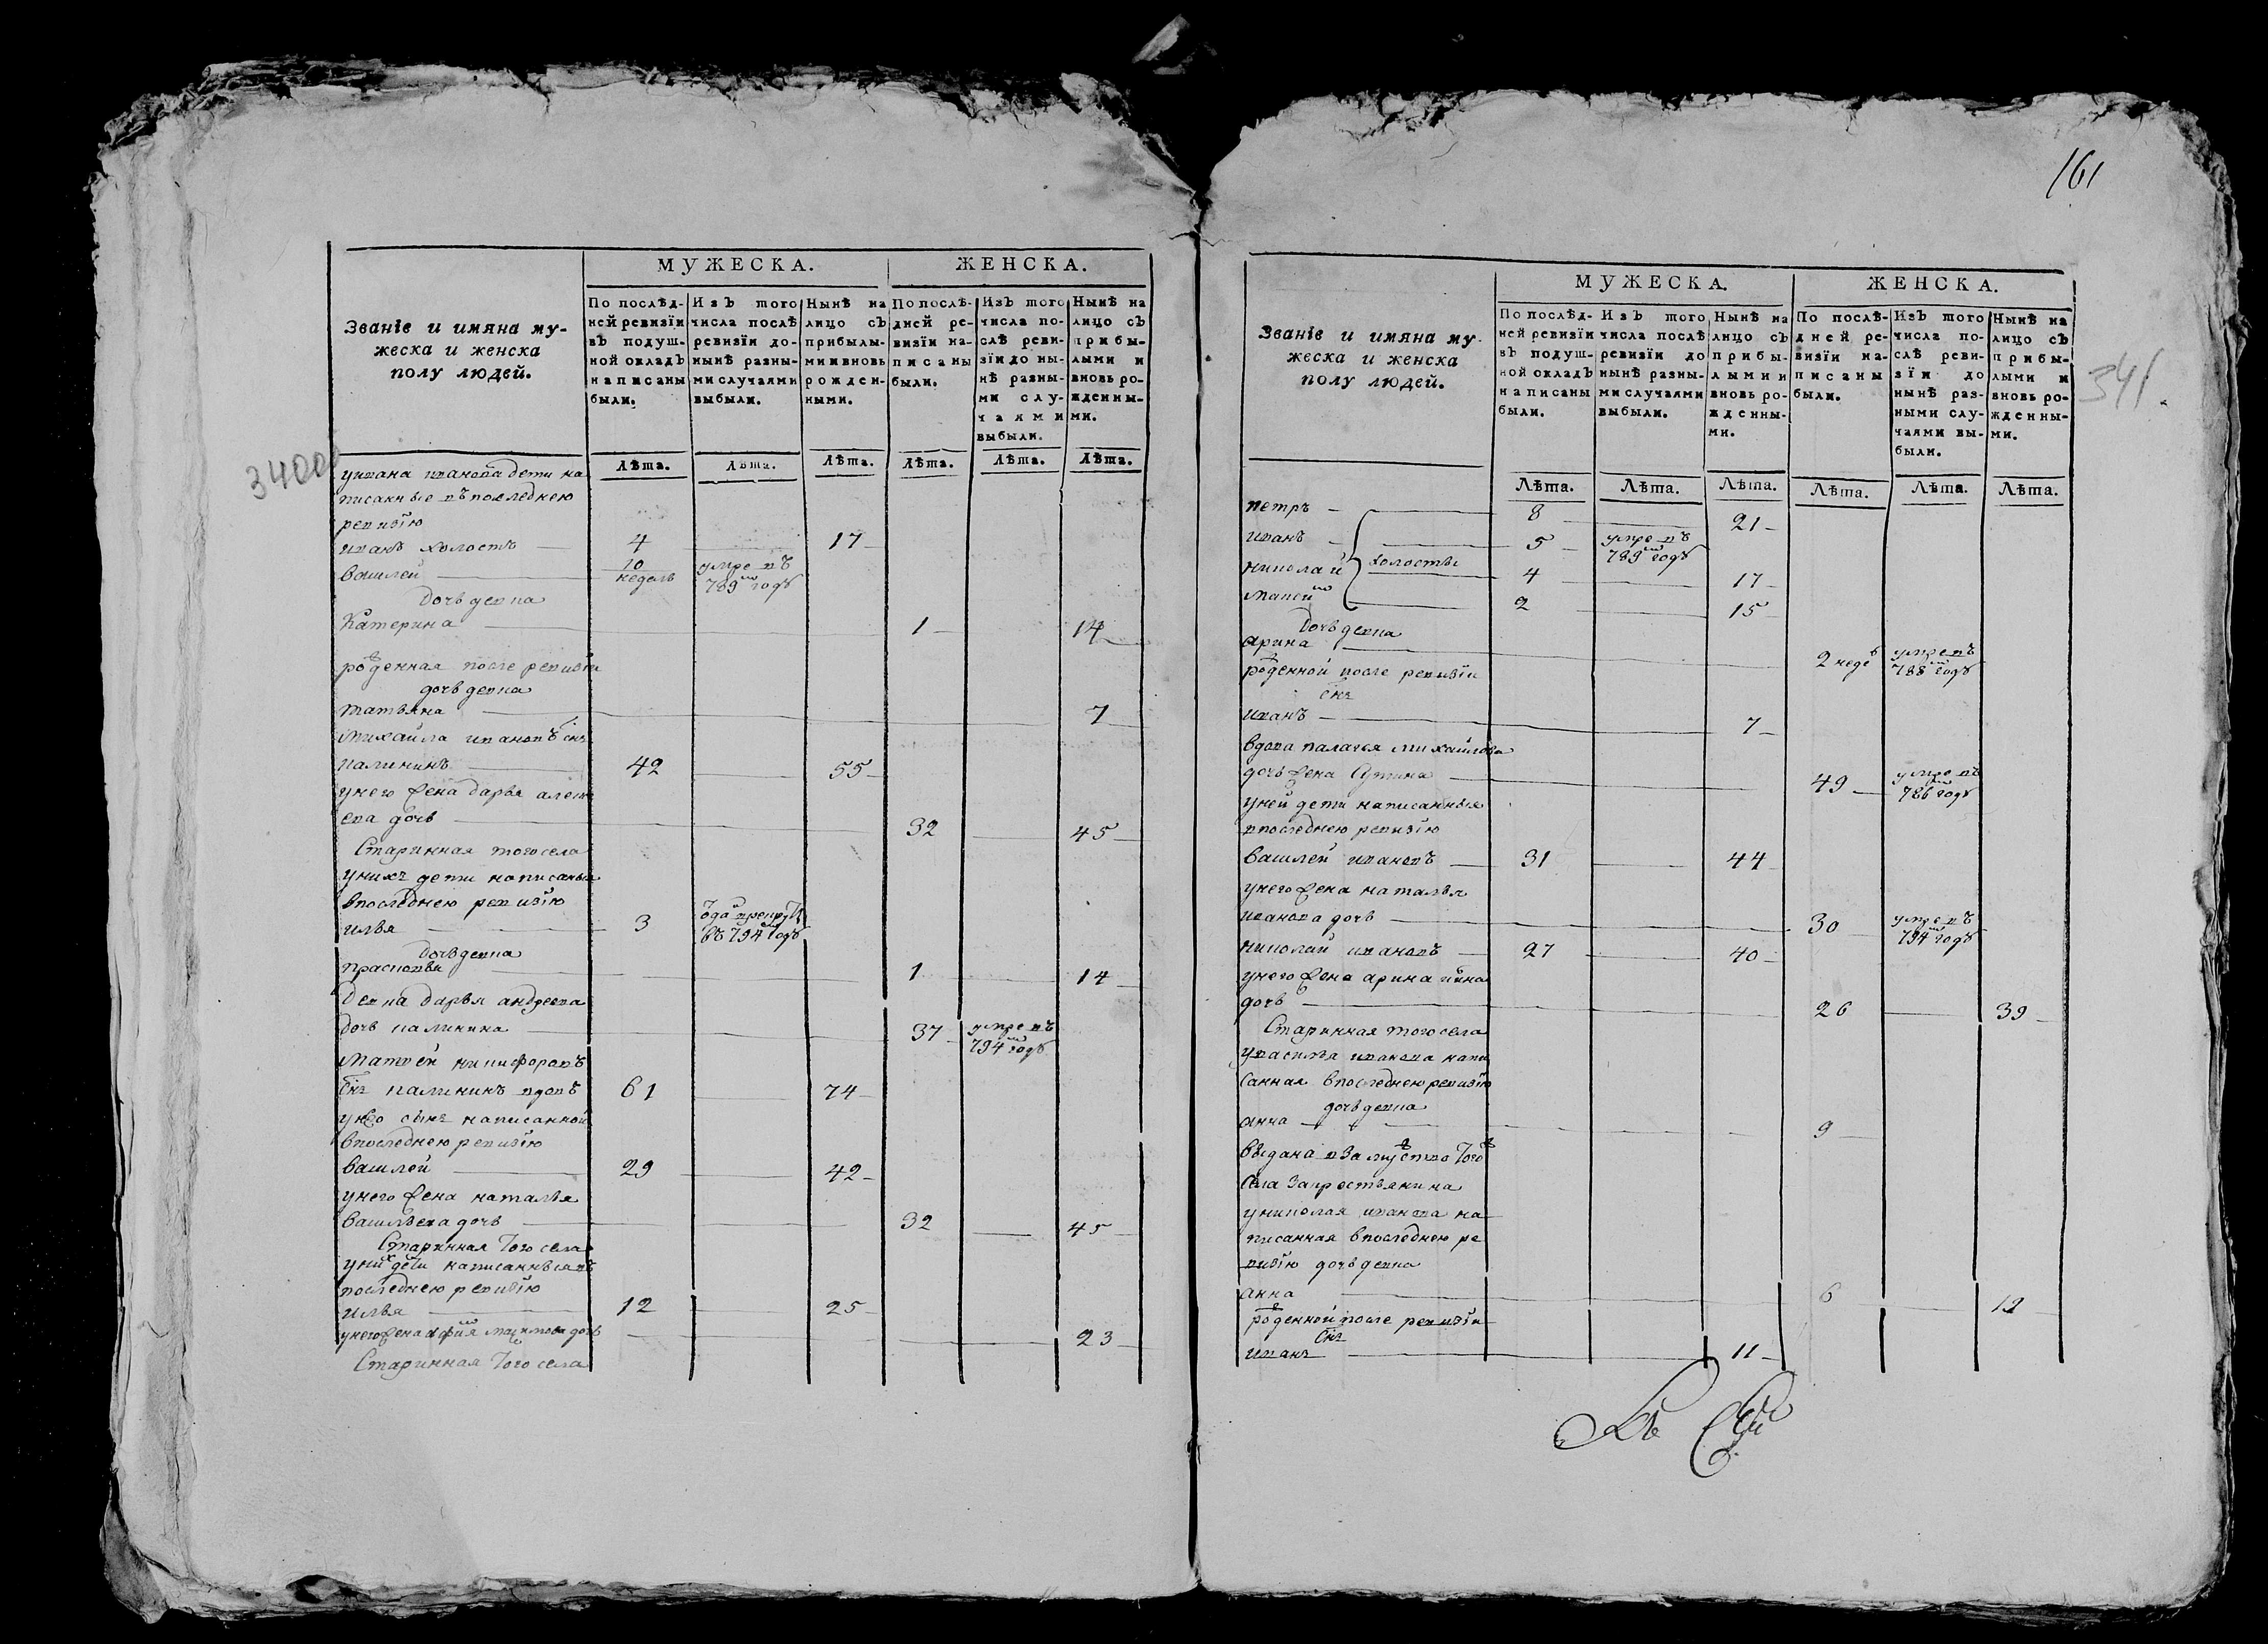 34000
МУЖЕСКА. ЖЕНСКА.
Званіе и имяна му-
жеска и женска
полу людей.
По послѣд-
ней ревизіи
въ подуш-
ной окладъ
написаны
были.
Изъ того
числа послѣ
ревизіи до-
нынѣ разны-
ми случаями
выбыли.
Нынѣ на
лицо съ
прибылы-
ми и вновь
рожден-
ными.
По послѣ-
дней ре-
визіи на-
писаны
были.
Изъ того
числа по-
слѣ реви-
зіи до ны-
нѣ разны-
ми слу-
чаями
выбыли.
Нынѣ на
лицо съ
прибы-
лыми и
вновь ро-
жденны-
ми.
Лѣта. Лѣта. Лѣта. Лѣта. Лѣта. Лѣта.
уивана иванова дети на
писанные въ последнею
ревизїю
иванъ холостъ 4 17
василей 10 недель умре въ 789 м годѣ
дочь девка
катерина 1 14
рожденная после ревизїи
дочь девка
татьяна 7
михайла ивановъ снъ
калининъ 42 55
унего жена дарья алекс
ева дочь 32 45
Старинная того села
унихъ дети написаныя
впоследнею ревизїю
илья 3 въ 794 м годѣ
дочь девка
прасковья 1 14
девка дарья андреева
дочь калинина 37 умре въ 794 м годѣ
матвей никифоровъ
снъ калининъ вдовъ 61 74
унево сынъ написанной
впоследнею ревизїю
василей 29 42
унего жена наталья
васильева дочь 32 45
Старинная того села
унихъ дети написанныя въ
последнею ревизїю
илья 12 25
унего жена дочь 23
Старинная того села
161
341.
МУЖЕСКА. ЖЕНСКА.
Званіе и имяна му-
жеска и женска
полу людей.
По послѣд-
ней ревизіи
въ подуш-
ной окладъ
написаны
были.
Изъ того
числа послѣ
ревизіи до
нынѣ разны-
ми случаями
выбыли.
Нынѣ на
лицо съ
прибы-
лыми и
вновь ро-
жденны-
ми.
По послѣ-
дней ре-
визіи на-
писаны
были.
Изъ того
числа по-
слѣ реви-
зіи до
нынѣ раз-
ными слу-
чаями вы-
были.
Нынѣ на
лицо съ
прибы-
лыми и
вновь ро-
жденны-
ми.
Лѣта. Лѣта. Лѣта. Лѣта. Лѣта. Лѣта.
петръ 8 21
иванъ 5 умре въ 789 м годѣ
николай холосты 4 17
матвей 2 15
дочь девка
арина 2 неде умре въ 788 м годѣ
рожденной после ревизїи
снъ
иванъ 7
вдова палагея михайлова
дочь жена 49 умре въ 786 м годѣ
уней дети написанныя
впоследнею ревизїю
василей ивановъ 31 44
унего жена наталья
иванова дочь 30 умре въ 794 м годѣ
николай ивановъ 27 40
унего жена арина
дочь 26 39
Старинная того села
увасилья иванова напи
санная впоследнею ревизїю
дочь девка
анна 9
выдана взамужство того ж
села закрестьянина
униколая иванова на
писанная впоследнею ре
визїю дочь девка
анна 6 19
рожденной после ревизїи
снъ
иванъ 11